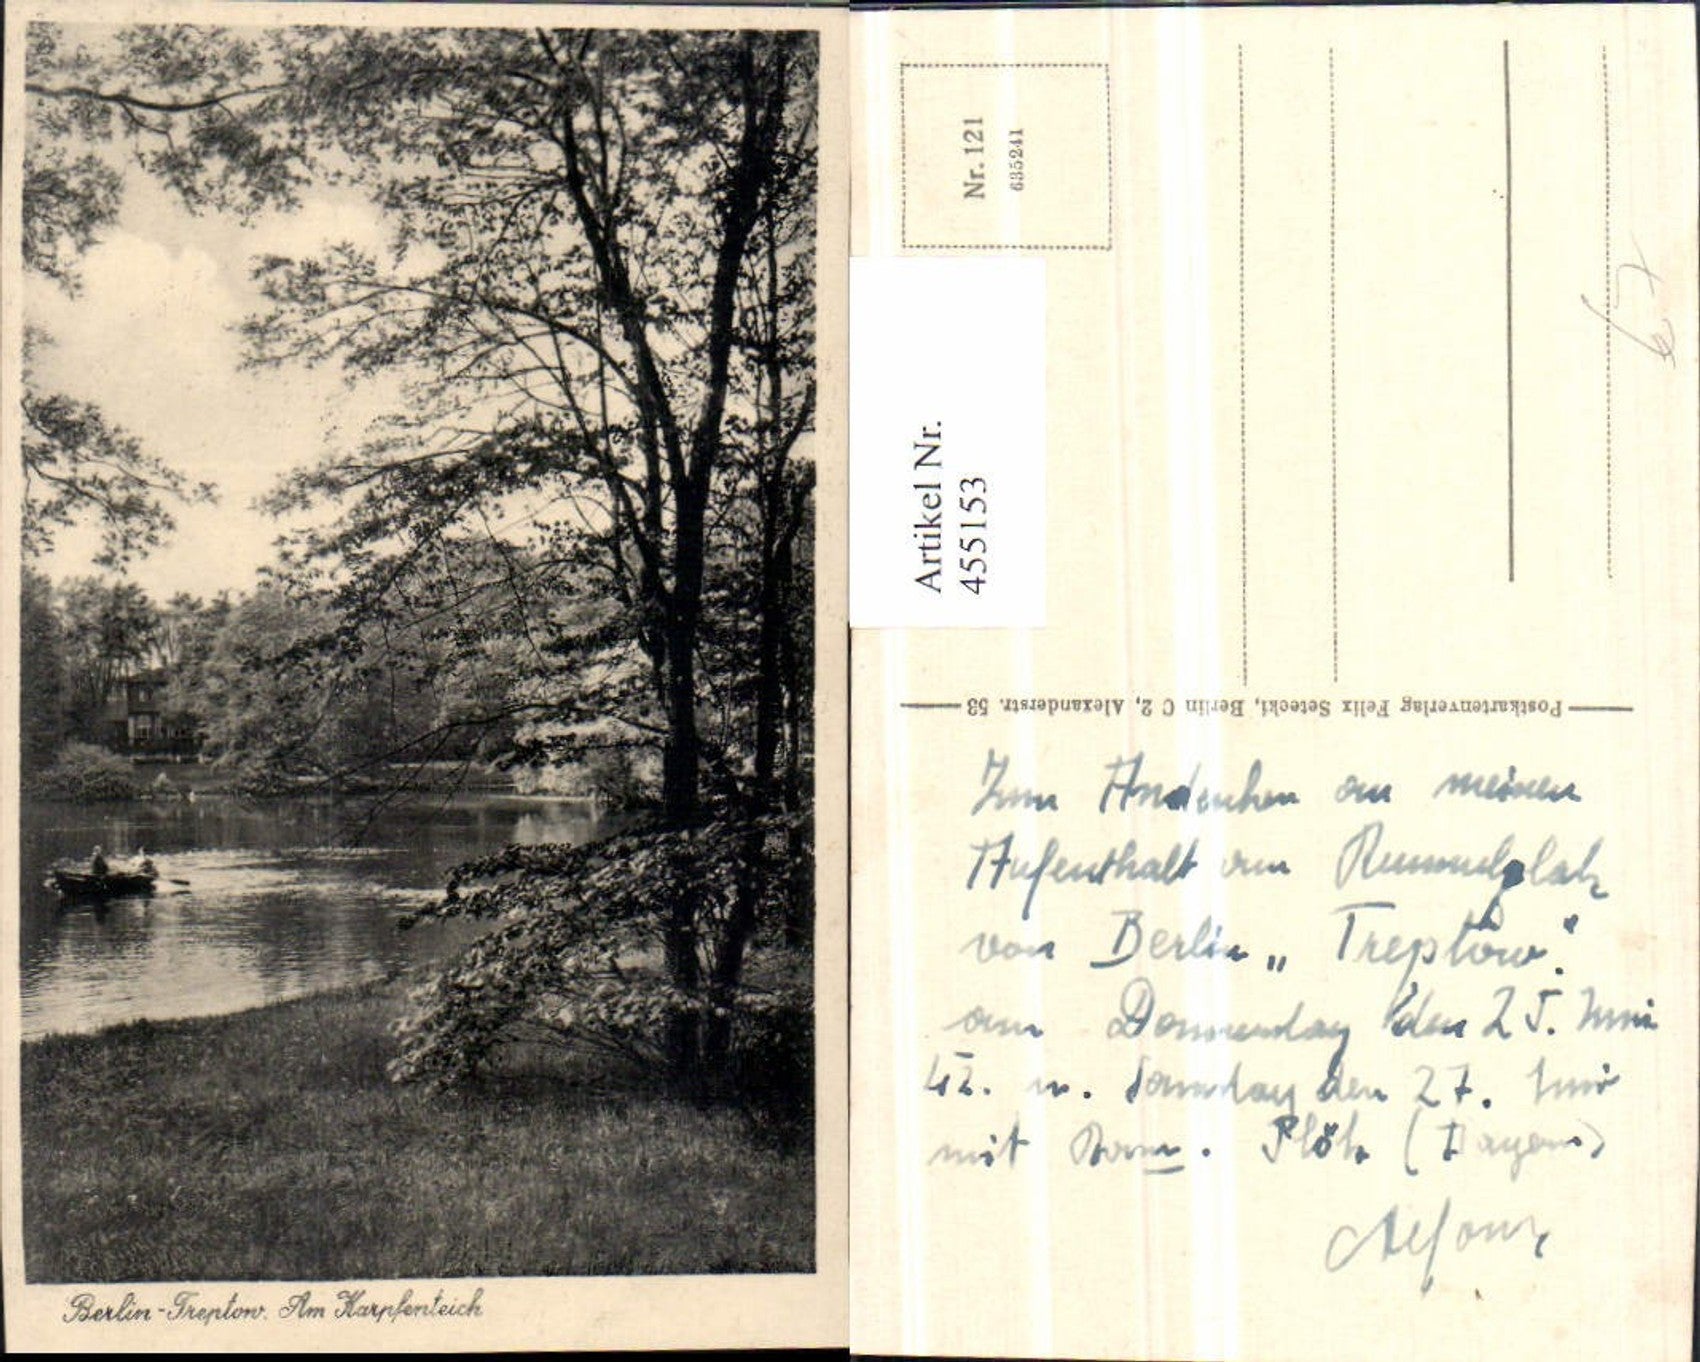 Berlin-Treptow. Am Karpfenteich
Nr. 121
635241
Artikel Nr.
455153
Postkartenverlag Felix Setecki, Berlin C 2, Alexanderstr. 53
67
Zum Andenken an meinen
Aufenthalt am Rummelplatz
von Berlin „Treptow".
am Donnerstag den 25. Juni
42. u. Samstag den 27. Juni
mit (Bayern)
Alfons